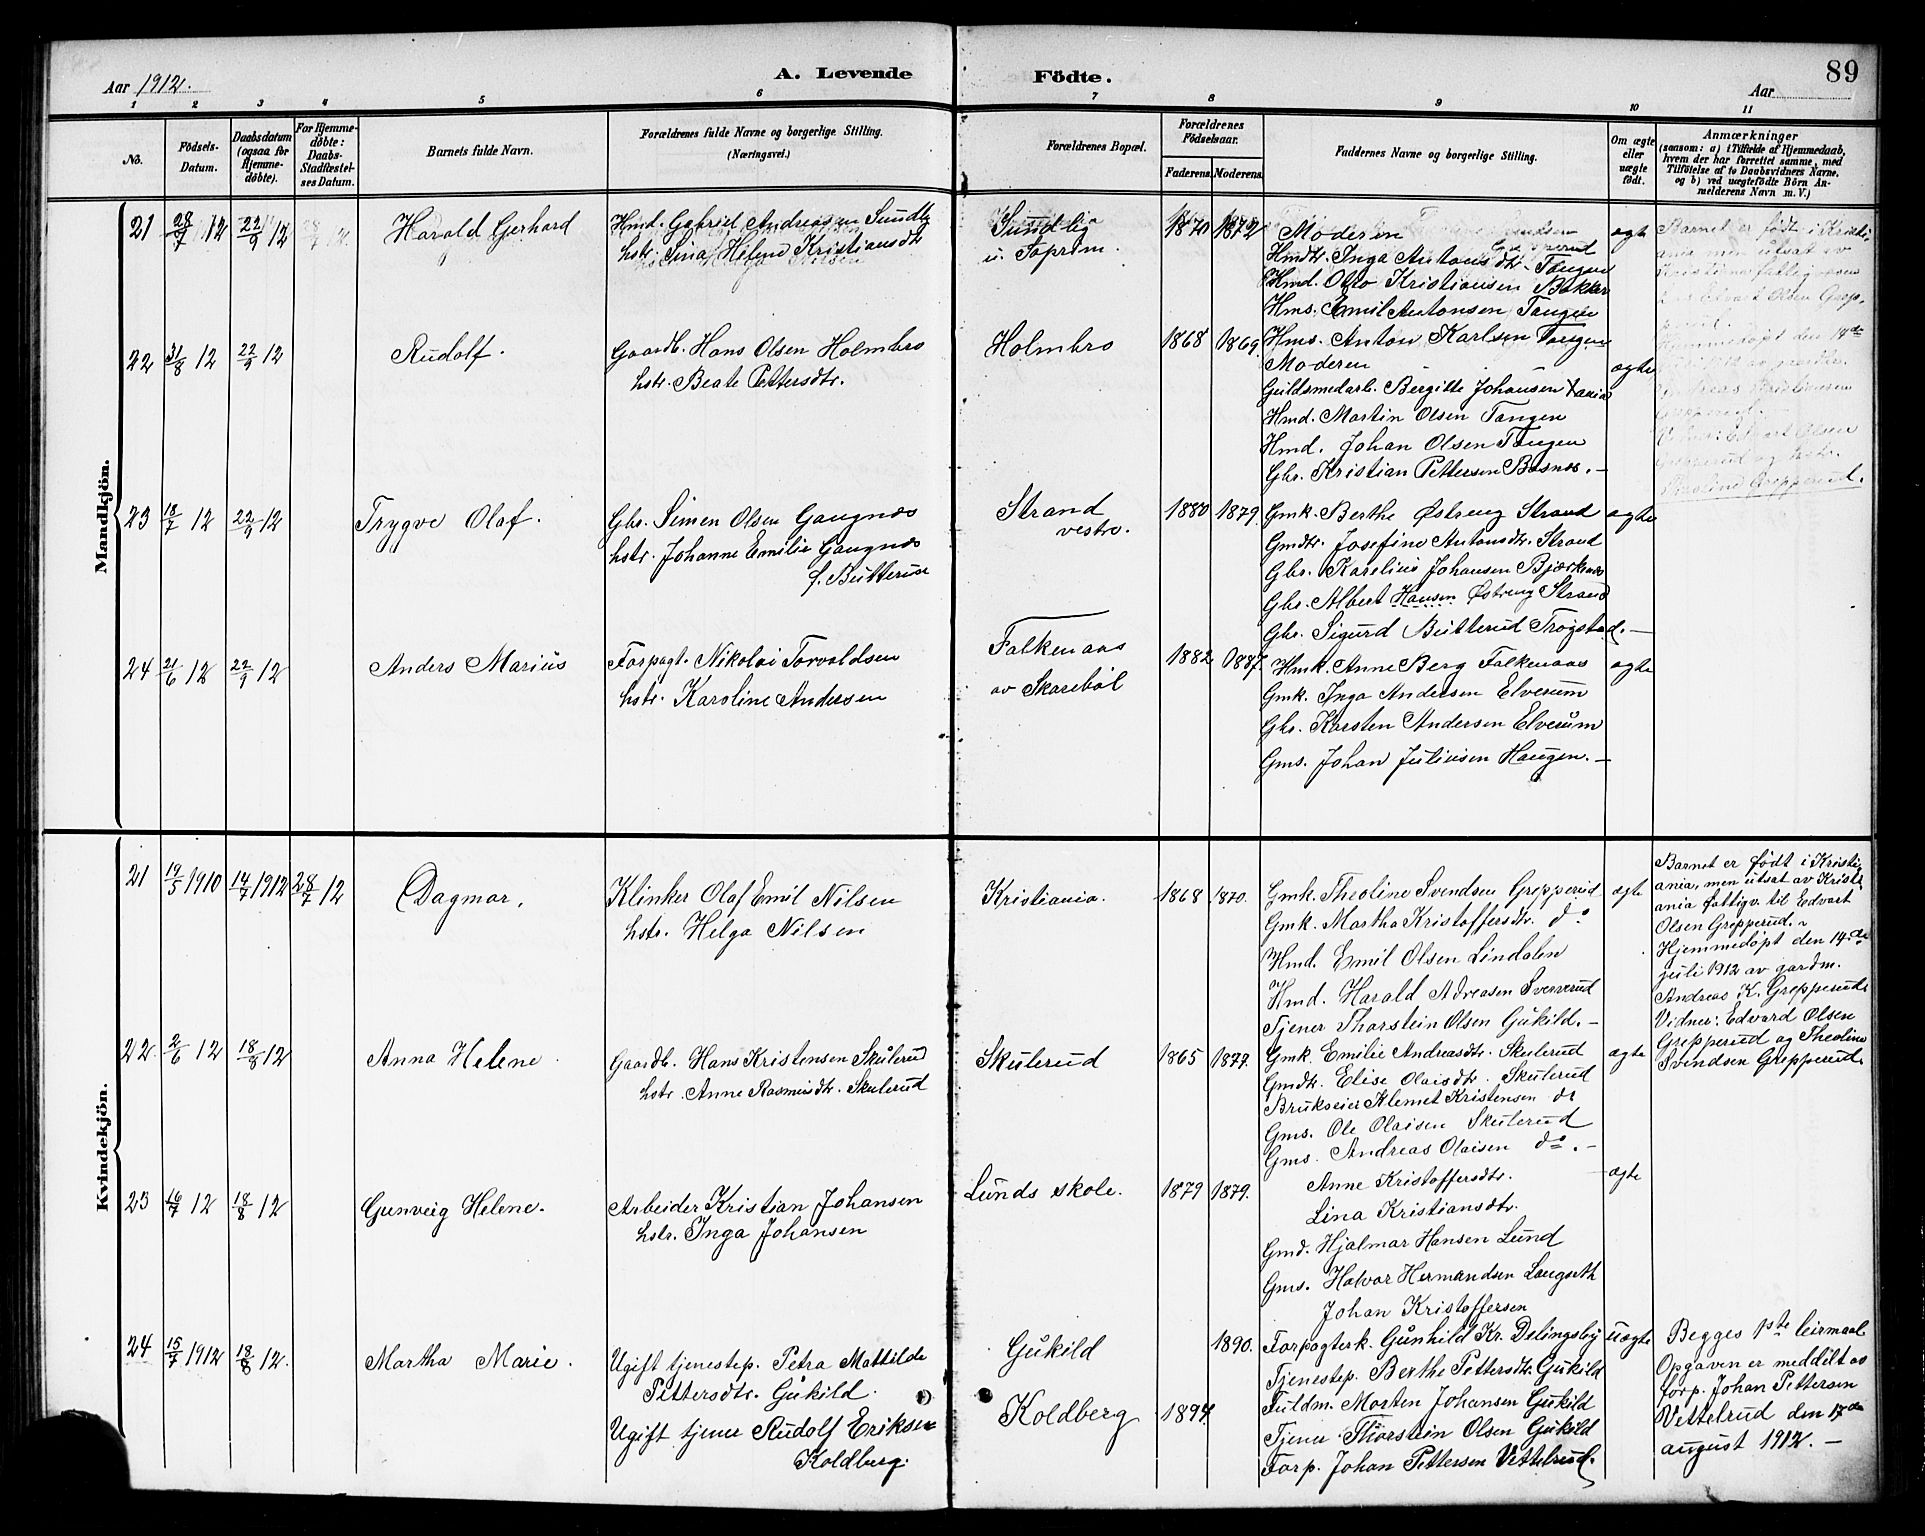 Aar 1912.
A. Levende Födte.
89
Aar
1 2 3 4 5 6 7 8 9 10 11
No.
Födsels-Datum.
Daabsdatum (ogsaa for Hjemme-döbte).
For Hjemme-döbte: Daabs-Stadfæstel-ses Datum.
Barnets fulde Navn.
Forældrenes fulde Navne og borgerlige Stilling. (Næringsvei.)
Forældrenes Bopæl.
Forældrenes Födselsaar.
Faderens. Moderens.
Faddernes Navne og borgerlige Stilling.
Om ægte eller uægte födt.
Anmærkninger
(saasom: a) i Tilfælde af Hjemmedaab,
hvem der har forrettet samme, med
Tilföielse af to Daabsvidners Navne,
og b) ved uægtefödte Börn An-
melderens Navn m. V.)
Mandkjön.
21 28/7 12 22/9 12 Harald Gerhard
Hmd. Gabriel Andreasen Sundby
hstr. Sina Helene Kristiansdtr
Sundby
u. Toprom.
1870 1872
Moderen
Hmdtr. Inga Antonsdtr. Tangen
Hmd. Otto Kristiansen Bakker
Hms. Emil Antonsen Tangen
Hms. Anton Karlsen Tangen
ægte
22 31/8 12 22/9 12 Rudolf.
Gaardb. Hans Olsen Holmbro
hstr. Beate Pettersdtr.
Holmbro
1868 1869.
Moderen
Guldsmedarb. Bergitte Johansen Xania
Hmd. Martin Olsen Tangen
Hmd. Johan Olsen Tangen
Gbr. Kristian Pettersen Bosnes. –
ægte
23 18/7 12 22/9 12 Trygve Olaf.
Gbr. Simen Olsen Gangnæs
hstr. Johanne Emilie Gangnæs
f. Butterud
Strand
vestre.
1880 1879.
Gmk. Berthe Østreng Strand
Gmdtr. Josefine Antonsdtr. Strand
Gbr. Karelius Johansen Bjørkenæs
Gbr. Albert Hansen Østreng Strand
Gbr. Sigurd Butterud Trøgstad. –
ægte
24 21/6 12 22/9 12 Anders Marius
Forpagt. Nikolai Torvaldsen
hstr. Karoline Andersen
Falkenaas
av Skarebøl
1882 1887.
Hmk. Anne Berg Falkenaas
Gmk. Inga Andersen Elverum
Gbr. Karsten Andersen Elverum
Gms. Johan Juliusen Haugen. –
ægte
Kvindekjön.
21 19/5 1910 14/7 1912 28/7 12 Dagmar.
Klinker Olaf Emil Nilsen
hstr. Helga Nilsen
Kristiania.
1868 1870.
Gmk. Theoline Svendsen Grepperud
Gmk. Martha Kristoffersdtr. do
Hmd. Emil Olsen Lindalen
Hmd. Harald Adreasen Sververud
Tjener Thorstein Olsen Gukild. –
ægte
Barnet er født i Kristi-
ania, men utsat av Kristi
ania fattigv. til Edvart
Olsen Grepperud. –
Hjemmedøpt den 14.de
juli 1912 av gardm.
Andreas K. Grepperud.
Vidner: Edvard Olsen
Grepperud og Theoline
Svendsen Grepperud.
22. 2/6 12 18/8 12 Anna Helene.
Gaardb. Hans Kristensen Skulerud
hstr. Anne Rasmusdtr. Skulerud
Skulerud
1865 1877.
Gmk. Emilie Andreasdtr. Skulerud
Gmdtr. Elise Olaisdtr. Skulerud
Brukseier Klemet Kristensen do
Gms. Ole Olaisen Skulerud
Gms. Andreas Olaisen do. –
ægte
23 16/7 12 18/8 12 Gunveig Helene.
Arbeider Kristian Johansen
hstr. Inga Johansen
Lunds skole.
1879 1879.
Anne Kristoffersdtr.
Lina Kristiansdtr.
Gmd. Hjalmar Hansen Lund
Gms. Halvor Hermandsen Langseth
Johan Kristoffersen
ægte
24 15/7 1912 18/8 12. Martha Marie.
Ugift tjenestep. Petra Mattilde
Pettersdtr. Gukild.
Ugift tjener Rudolf Eriksen
Koldberg.
Gukild
Koldberg
1890.
1894
Forpagterk. Gunhild Kr. Delingsby
Tjenestep. Berthe Pettersdtr. Gukild
Fuldm. Morten Johansen Gukild
Tjener Thorstein Olsen Gukild
Forp. Johan Pettersen Vettelrud.
Uægte
Begges 1ste leirmaal
Opgaven er meddelt av
forp. Johan Pettersen
Vettelrud den 17de
august 1912. –